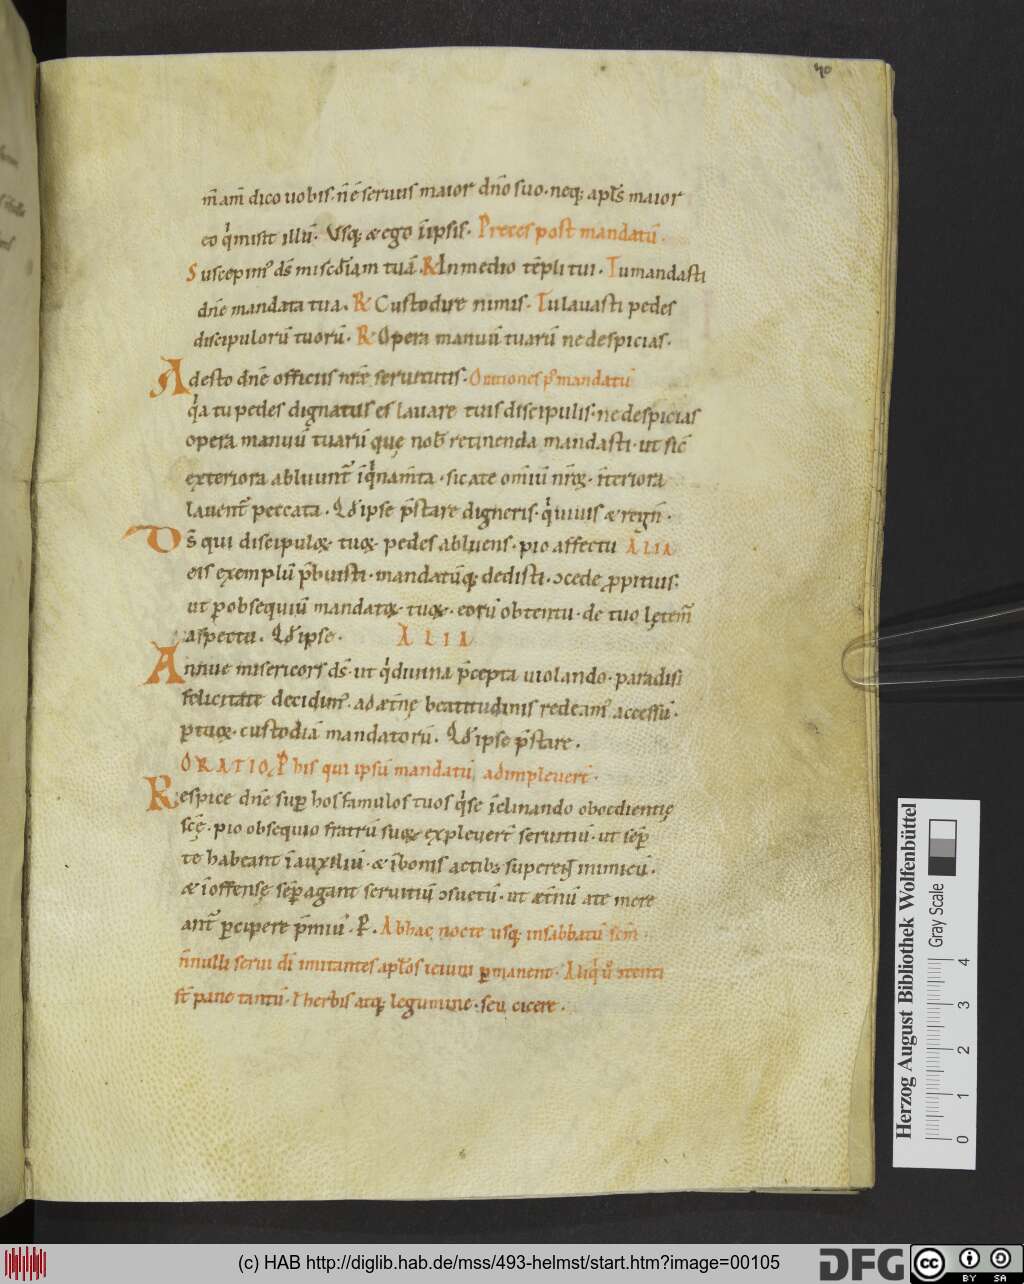 40
m̄ am̄ dico uobis. n̄ ē seruus maior dn̄o suo. neq; apl̄s maior
eo q̇ misit illū. Vsq; & ego īipsis. Preces post mandatū.
Suscepim᷒ ds̄ misc̄diam tuā. R In medio tēpli tui. Tu mandasti
dn̄e mandata tua. R Custodire nimis. Tu lauasti pedes
discipulorū tuorū. R Opera manuū tuarū ne despicias.
Adesto dn̄e officiis nr̄ę seruitutis. Orationes p᷒ mandatū
q̇a tu pedes dignatus es lauare tuis discipulis. ne despicias
opera manuū tuarū quę nob̄ retinenda mandasti. ut sic̄
exteriora abluunt᷒ īq̇nam̄ta. sic a te omīū nr̄oꝝ. īteriora
lauent᷒ peccata. Qđ ipse p̄stare digneris. q̇ uiuis & regn̄.
Ds̄ qui discipuloꝝ tuoꝝ pedes abluens. pio affectu ALIA
eis exemplū p̄buisti. mandatūq; dedisti. ɔcede ꝓpitius.
ut ꝑ obsequiū mandatoꝝ tuoꝝ. eorū obtentu. de tuo lętem᷒
aspectu. Qđ ipse. ALIA
Annue misericors ds̄. ut q̇ diuina p̄cepta uiolando. paradisi
felicitate decidim᷒. ad ætnę beatitudinis redeam᷒ accessū.
ꝑ tuoꝝ. custodiā mandatorū. Qđ ipse p̄stare.
ORATIO, P his qui ipsū mandatū, adimpleuert̄.
Respice dn̄e suꝑ hos famulos tuos q̇ se īclinando oboedientię
scę̄. pio obsequio fratrū suoꝝ expleuert̄ seruitiū. ut sēꝑ
te habeant ī auxiliū. & ī bonis actib; superent inimicū.
& ī offensę sēꝑ agant seruitiū ɔsuetū. ut ætnū a te mere
ant᷒ ꝑcipere p̄miū. P. Ab hac nocte usq; in sabbatū scm̄
n̄nulli serui dī imitantes apl̄os ieiuni ꝑmanent. Aliq̇ ū ɔtenti
st̄ pane tantū. ł herbis atq; legumine. seu cicere.
Herzog August Bibliothek Wolfenbüttel
Gray Scale
0 1 2 3 4
(c) HAB http://diglib.hab.de/mss/493-helmst/start.htm?image=00105
DFG
cc BY SA